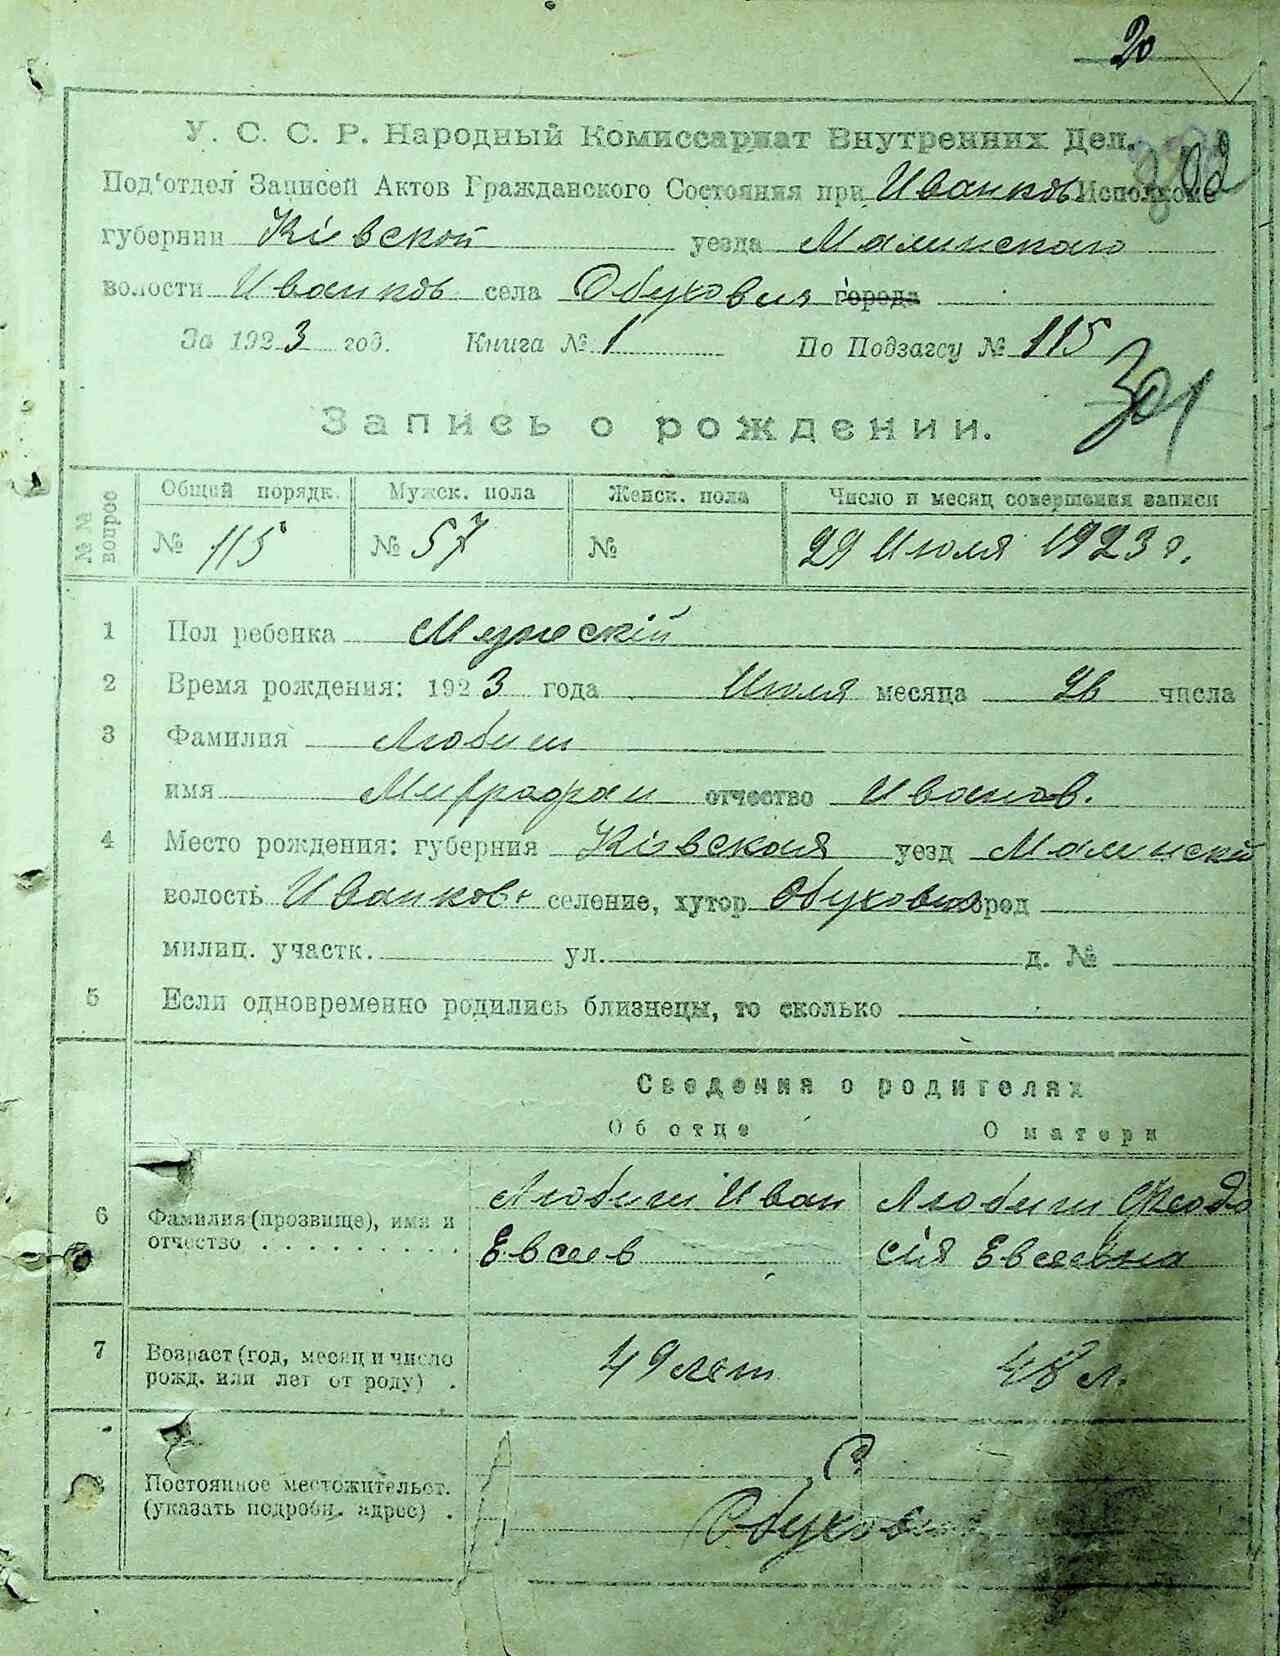 20
У. С. С. Р. Народный Комиссариат Внутренних Дел.
Под'отдел Записей Актов Гражданского Состояния при Иванков Исполкоме
губернии Кіевской уезда Малинскаго
волости Иванков села Обуховия города
За 1923 год. Книга № 1 По Подзагсу № 115
301
Запись о рождении.
№№ вопрос Общий порядк. Мужск. пола Женск. пола Число и месяц совершения записи
№ 115 № 57 № 29 Июля 1923 г.
1 Пол ребенка Мужескій
2 Время рождения: 1923 года Июля месяца 26 числа
3 Фамилия Любич
имя Митрофан отчество Иванов.
4 Место рождения: губерния Кіевская уезд Малинскій
волость Иванков. селение, хутор Обуховия город
милиц. участк. ул. д. №
5 Если одновременно родились близнецы, то сколько
Сведения о родителях
Об отце О матери
6 Фамилия (прозвище), имя и отчество Любич Иван Евсеев Любич Феодосия Евсеевна
7 Возраст (год, месяц и число рожд. или лет от роду) 49 лет 48 л.
Постоянное местожительст. (указать подробн. адрес) С. Обуховия